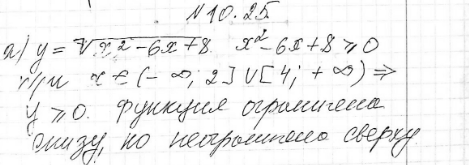 №10.25
а) y = √x² - 6x + 8 x² - 6x + 8 ⩾ 0
при x ∈ (-∞; 2] ∪ [4; +∞) ⇒
y ⩾ 0. Функция ограничена
снизу, но неограничено сверху